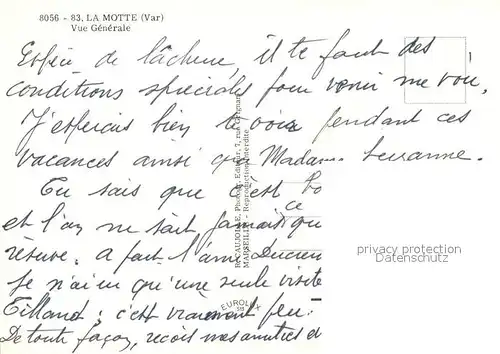 8056 - 83. LA MOTTE (Var)
Vue Générale
Espèce de lâcheur, il te faut des
conditions spéciales pour venir me voir,
J'espérais bien te voir pendant ces
vacances ainsi que Madame Suzanne.
Tu sais que c'est bo
ce
et l'on ne sait jamais qu
réserve. A part l'ami Lucien
je n'ai eu qu'une seule visite
; c'est vraiment peu.
De toute façon, reçois mes amitiés et
R. CAUJOLLE, Photogr. Editeur, 7, rue
MARSEILLE - Reproduction Interdite
EUROLUX
privacy protection
Datenschutz